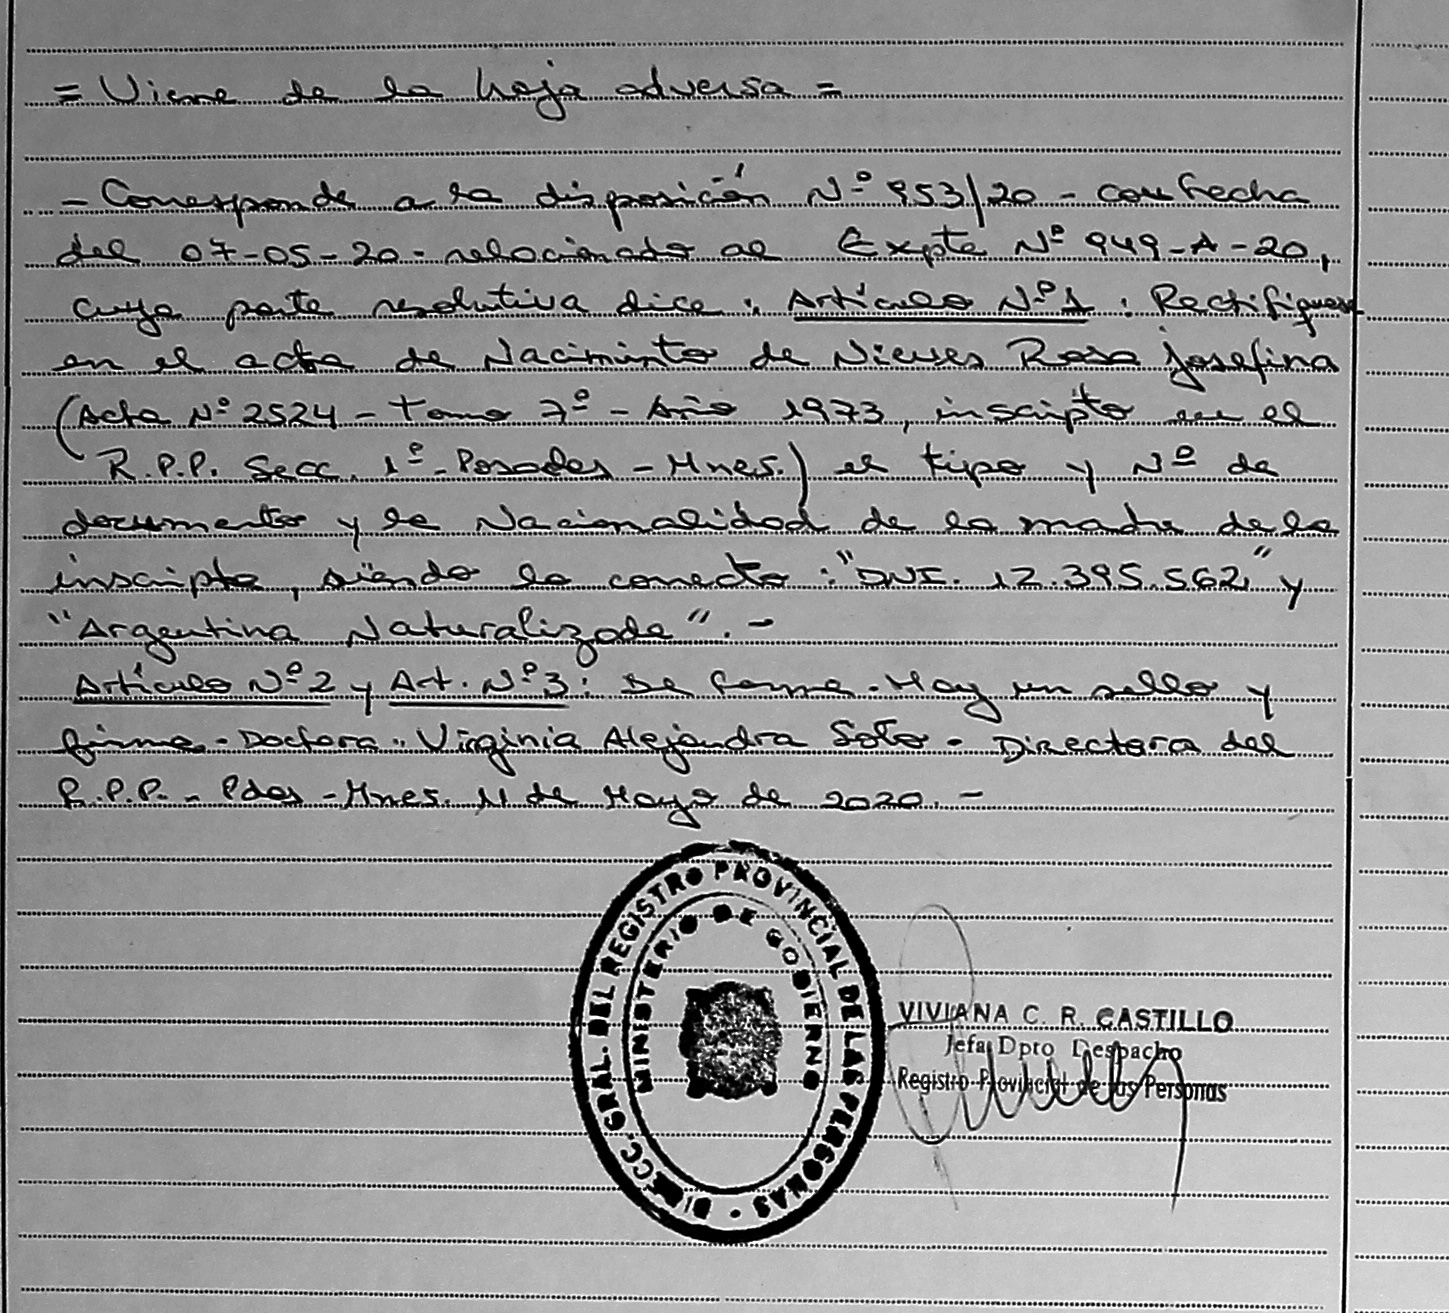 = Viene de la hoja adversa =
- Corresponde a la disposición Nº 953/20 - con fecha
del 07-05-20 - relacionado al Expte Nº 949-A-20,
cuya parte resolutiva dice: Artículo Nº1: Rectifiquese
en el acta de Naciminto de Nieves Rosa Josefina
(Acta Nº 2524 - Tomo 7º - Año 1973, inscripto en el
R.P.P. Secc. 1º - Posadas - Mnes.) el tipo y Nº de
documento y la Nacionalidad de la madre de la
inscripta, siendo lo correcto: "DNI. 12.395.562" y
"Argentina Naturalizada". -
Artículo Nº2 y Art. Nº3: De forma. Hay un sello y
firma - Doctora. Virginia Alejandra Soto - Directora del
R.P.P. - Pdas - Mnes. 11 de Mayo de 2020. -
DIRECC. GRAL. DEL REGISTRO PROVINCIAL DE LAS PERSONAS -
MINISTERIO DE GOBIERNO
VIVIANA C. R. CASTILLO
Jefa Dpto Despacho
Registro Provincial de las Personas